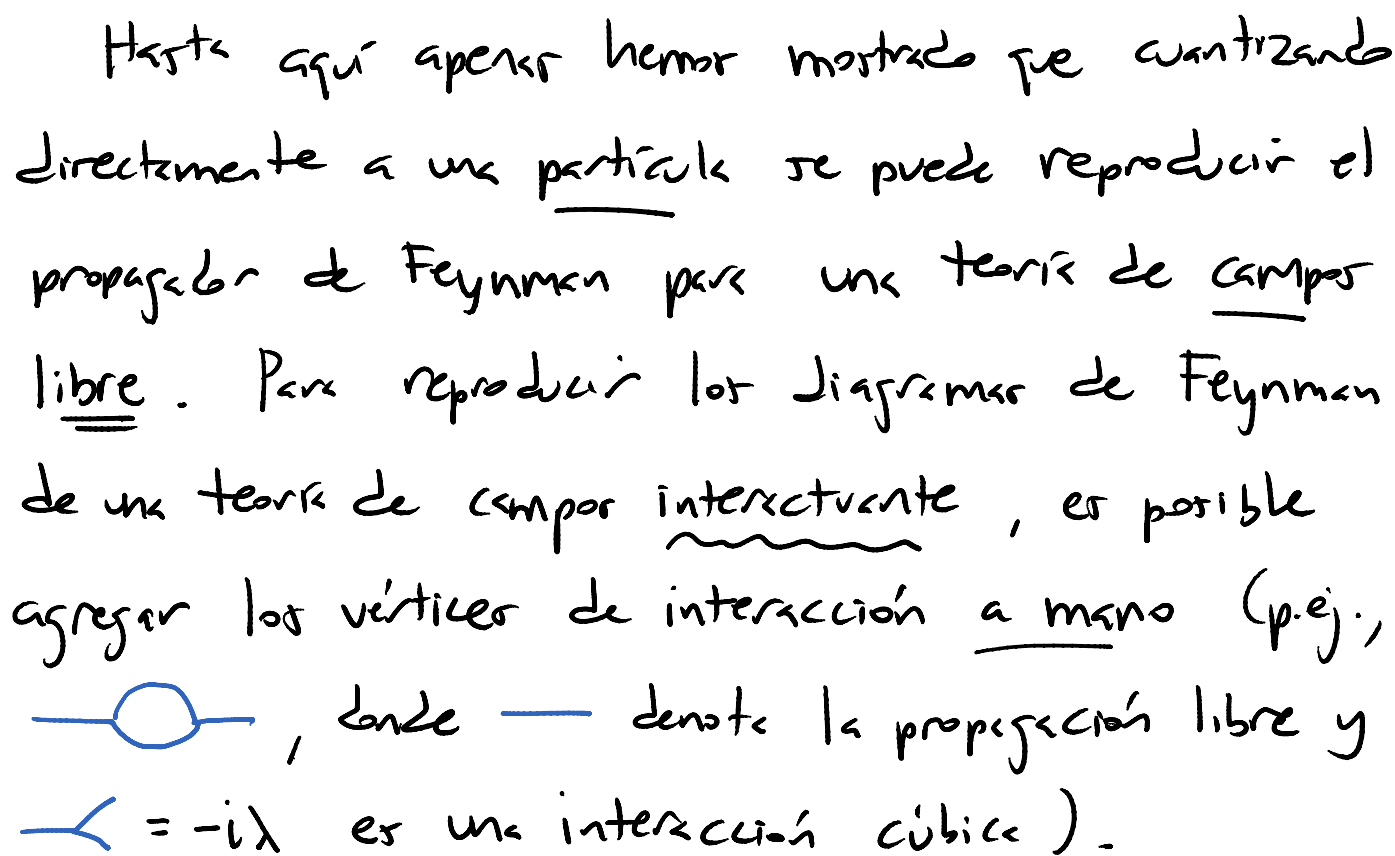 Hasta aquí apenas hemos mostrado que cuantizando
directamente a una partícula se puede reproducir el
propagador de Feynman para una teoría de campos
libre. Para reproducir los diagramas de Feynman
de una teoría de campos interactuante, es posible
agregar los vértices de interacción a mano (p.ej.,
, donde — denota la propagación libre y
= -iλ es una interacción cúbica).